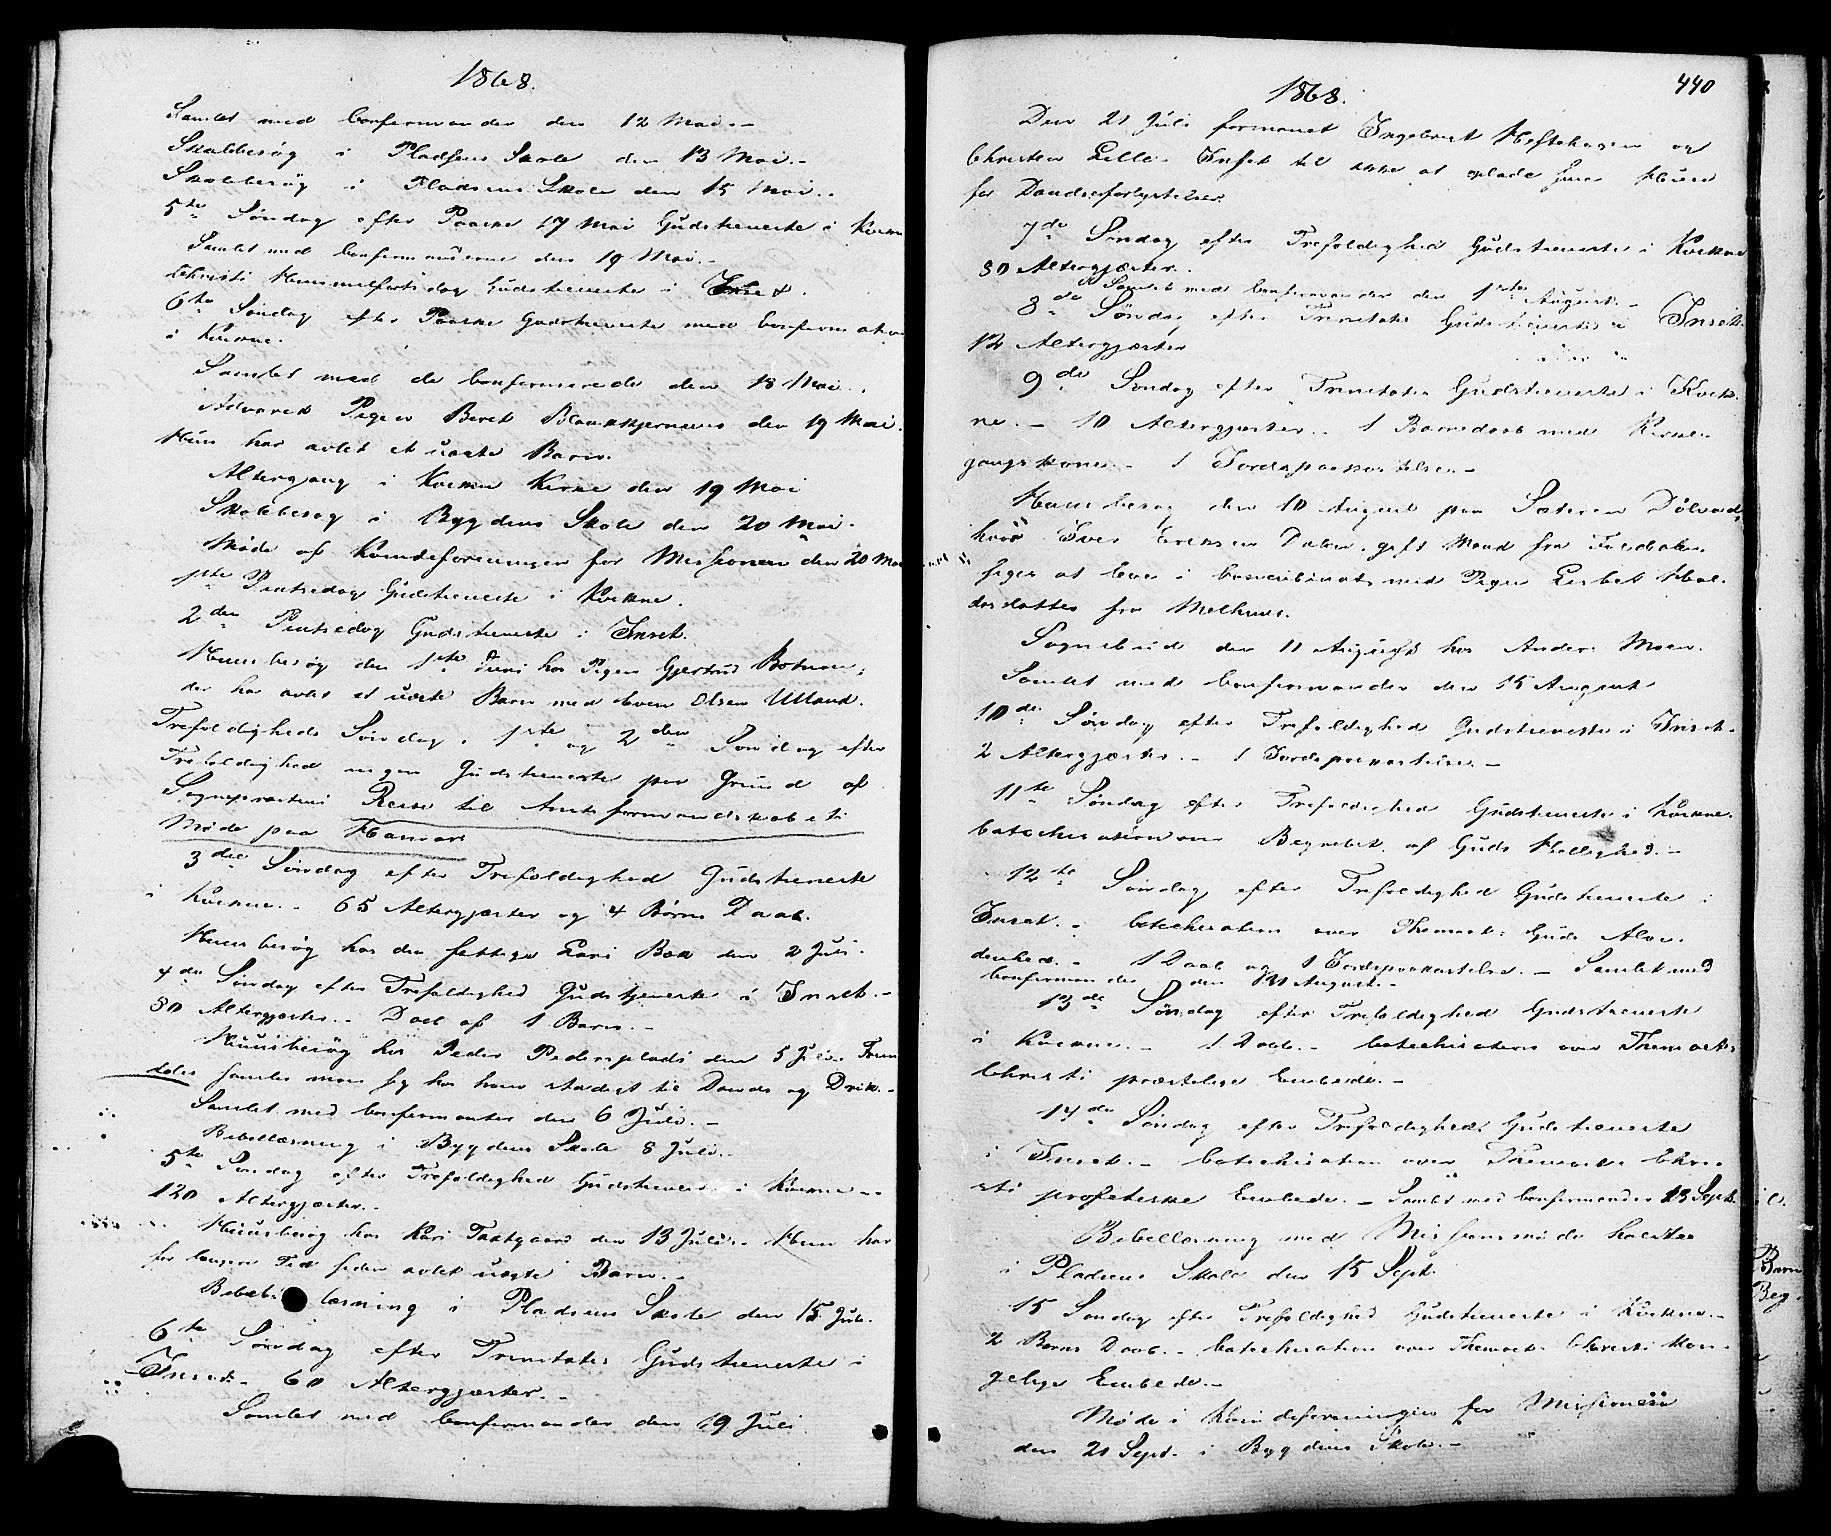 1868.
Samlet med Confirmander den 12 Mai. -
Skolebesøg i Pladsens Skole den 13 Mai. -
Skolebesøg i Pladsens Skole den 15 Mai. -
5te Søndag efter Paaske 17 Mai Gudstieneste i Kvikne
Samlet med Confirmanderne den 19 Mai. -
Christi Himmelfartsdag Gudstieneste i Inset.
6te Søndag efter Paaske Gudstieneste med Confirmation
i Kvikne.
Samlet med de Confirmerede den 18 Mai.
Advaret Pigen Beret den 19 Mai.
Hun har avlet et uægte Barn.
Altergang i Kvikne Kirke den 19 Mai
Skolebesøg i Bygdens Skole den 20 Mai.
Møde af Kvindeforeningen for Missionen den 20 Mai
1ste Pintsedag Gudstieneste i Kvikne.
2den Pintsedag Gudstieneste i Inset.
Huusbesøg den 1ste Juni hos Pigen Gjertrud
der har avlet et uægte Barn med Even Olsen Utland.
Trefoldigheds Søndag, 1ste og 2den Søndag efter
Trefoldighed ingen Gudstieneste paa Grund af
Sognepræstens Reise til Amtsformandskabets
Møde paa Hamar.
3die Søndag efter Trefoldighed Gudstieneste
i Kvikne. - 65 Altergjæster og 4 Børns Daab.
Huusbesøg hos den fattige Lari Boe den 2 Juli.
4de Søndag efter Trefoldighed Gudstjeneste i Inset. -
80 Altergjæster. - Daab af 1 Barn. -
Huusbesøg hos Peder Pedersplads den 5 Juli.
samles man sig hos ham stadigt til Dands og Drik. -
Samlet med Confirmanter den 6 Juli. -
Bibellæsning i Bygdens Skole 8 Juli. -
5te Søndag efter Trefoldighed Gudstieneste i Kvikne. -
120 Altergjæster. -
Huusbesøg hos Kari den 13 Juli. - Hun har
for længere Tid siden avlet uægte Barn. -
læsning i Pladsens Skole den 15 Juli.
6te Søndag efter Trinitatis Gudstieneste i
Inset. - 60 Altergjæster. -
Samlet med Confirmander den 19 Juli.
1868.
440
Den 21 Juli formanet Ingebret og
Christen Lille-Inset til ikke at oplade sine Huse
for Dandseforlystelser.
7de Søndag efter Trefoldighed Gudstieneste i Kvikne
80 Altergjæster.
Samlet med Confirmander den 1ste August. -
8de Søndag efter Trinitatis Gudstieneste i Inset.
12 Altergjæster
9de Søndag efter Trinitatis Gudstieneste i Kvik-
ne. - 10 Altergjæster. - 1 Barnedaab med Kirke-
gangskone. - 1 Jordspaakastelse. -
Huusbesøg den 10 August paa Sæteren
hvor Iver Eriksen Dalen, gift Mand fra Foldalen
siges at leve i Concubinat med Pigen Lisbet
datter fra Melhuus.
Sognebud den 11 August hos Anders Moen.
Samlet med Confirmander den 15 August
10de Søndag efter Trefoldighed Gudstieneste i Inset.
2 Altergjæster. - 1 Jordspaakastelse. -
11te Søndag efter Trefoldighed Gudstieneste i Kvikne.
Catechisation over Begrebet af Guds Hellighed. -
12te Søndag efter Trefoldighed Gudstieneste i
Inset. - Catechisation over Themaet: Guds Alvi-
denhed. - 1 Daab og 1 Jordspaakastelse. - Samlet med
Confirmander den August. -
13de Søndag efter Trefoldighed Gudstieneste
i Kvikne. - 1 Daab. - Catechisation over Themaet:
Christi præstelige Embede. -
14de Søndag efter Trefoldighed Gudstieneste
i Inset. - Catechisation over Themaet: Chri-
sti profetiske Embede. - Samlet med Confirmander 13 Sept.
Bibellæsning med Missionsmøde holdtes
i Pladsens Skole den 15 Sept.
15 Søndag efter Trefoldighed Gudstieneste i Kvikne. -
2 Børns Daab. - Catechisation over Themaet: Christi kon-
gelige Embede. -
Møde i Kvindeforeningen for Missionen
den 21 Sept. i Bygdens Skole. -
Barn
Beg-